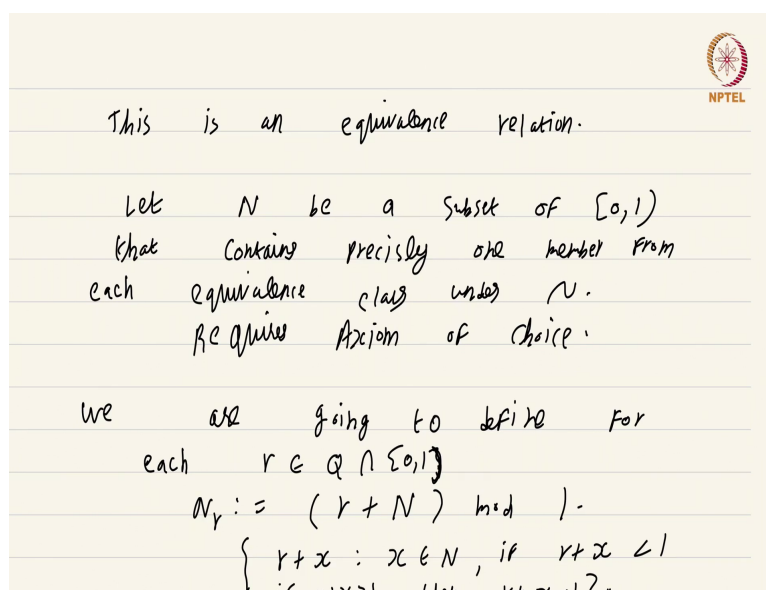 NPTEL
This is an equivalence relation.
Let N be a subset of [0,1)
that contains precisly one member from
each equivalence class under ~.
Requires Axiom of choice.
We are going to define for
each r ∈ Q ∩ [0,1)
N_r := (r + N) mod 1.
{ r+x : x ∈ N, if r+x < 1